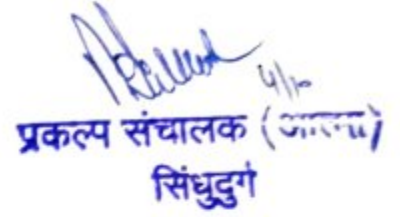 प्रकल्प संचालक (आत्मा)
सिंधुदुर्ग